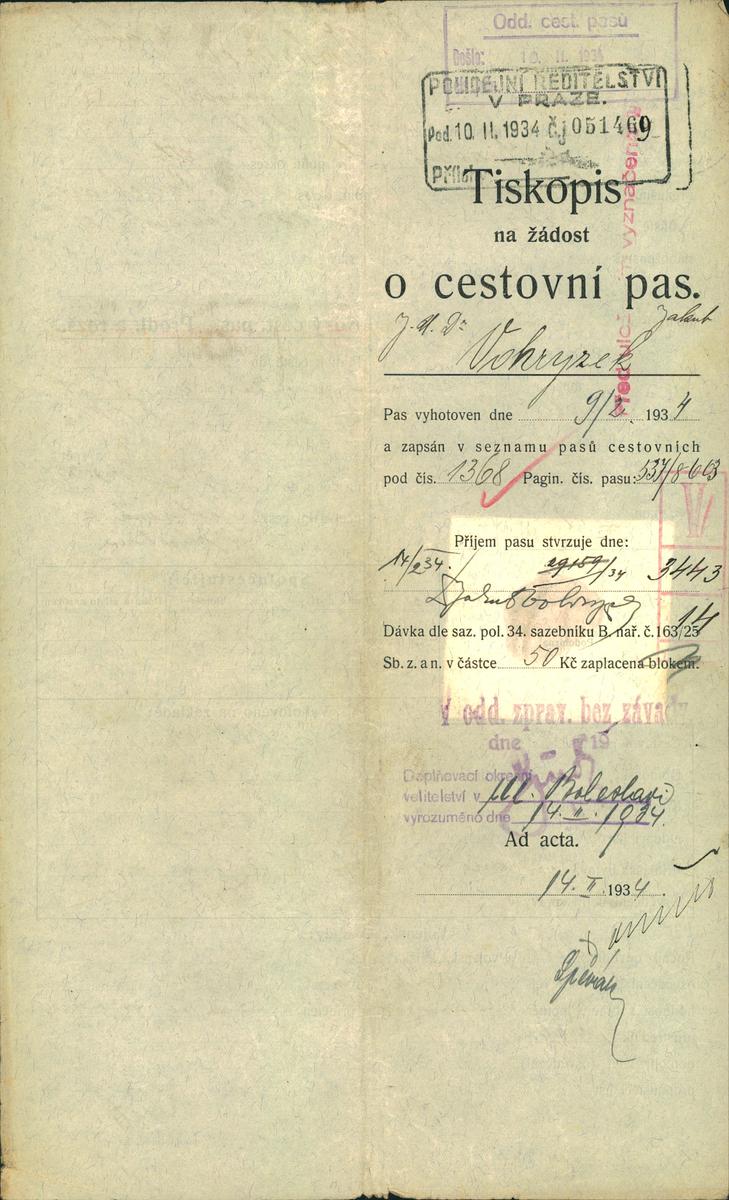 Odd. cest. pasů
Došlo: 10. II. 1934
POLICEJNÍ ŘEDITELSTVÍ
V PRAZE.
Pod. 10. II. 1934 čj 051469
Příloh
Tiskopis
na žádost
o cestovní pas.
J. U. Dr Vohryzek Jakub
Pas vyhotoven dne 9/2. 1934
a zapsán v seznamu pasů cestovních
pod čís. 1368 Pagin. čís. pasu: 537/8663
Příjem pasu stvrzuje dne:
14/II 34. 3443
Dávka dle saz. pol. 34. sazebníku B. nař. č. 163/25
14
Sb. z. a n. v částce 50 Kč zaplacena blokem.
V odd. zprav. bez závady
dne 19
Doplňovací okresní
velitelství v Ml. Boleslavi
vyrozuměno dne 14. II. 1934.
Ad acta.
14. II. 1934.